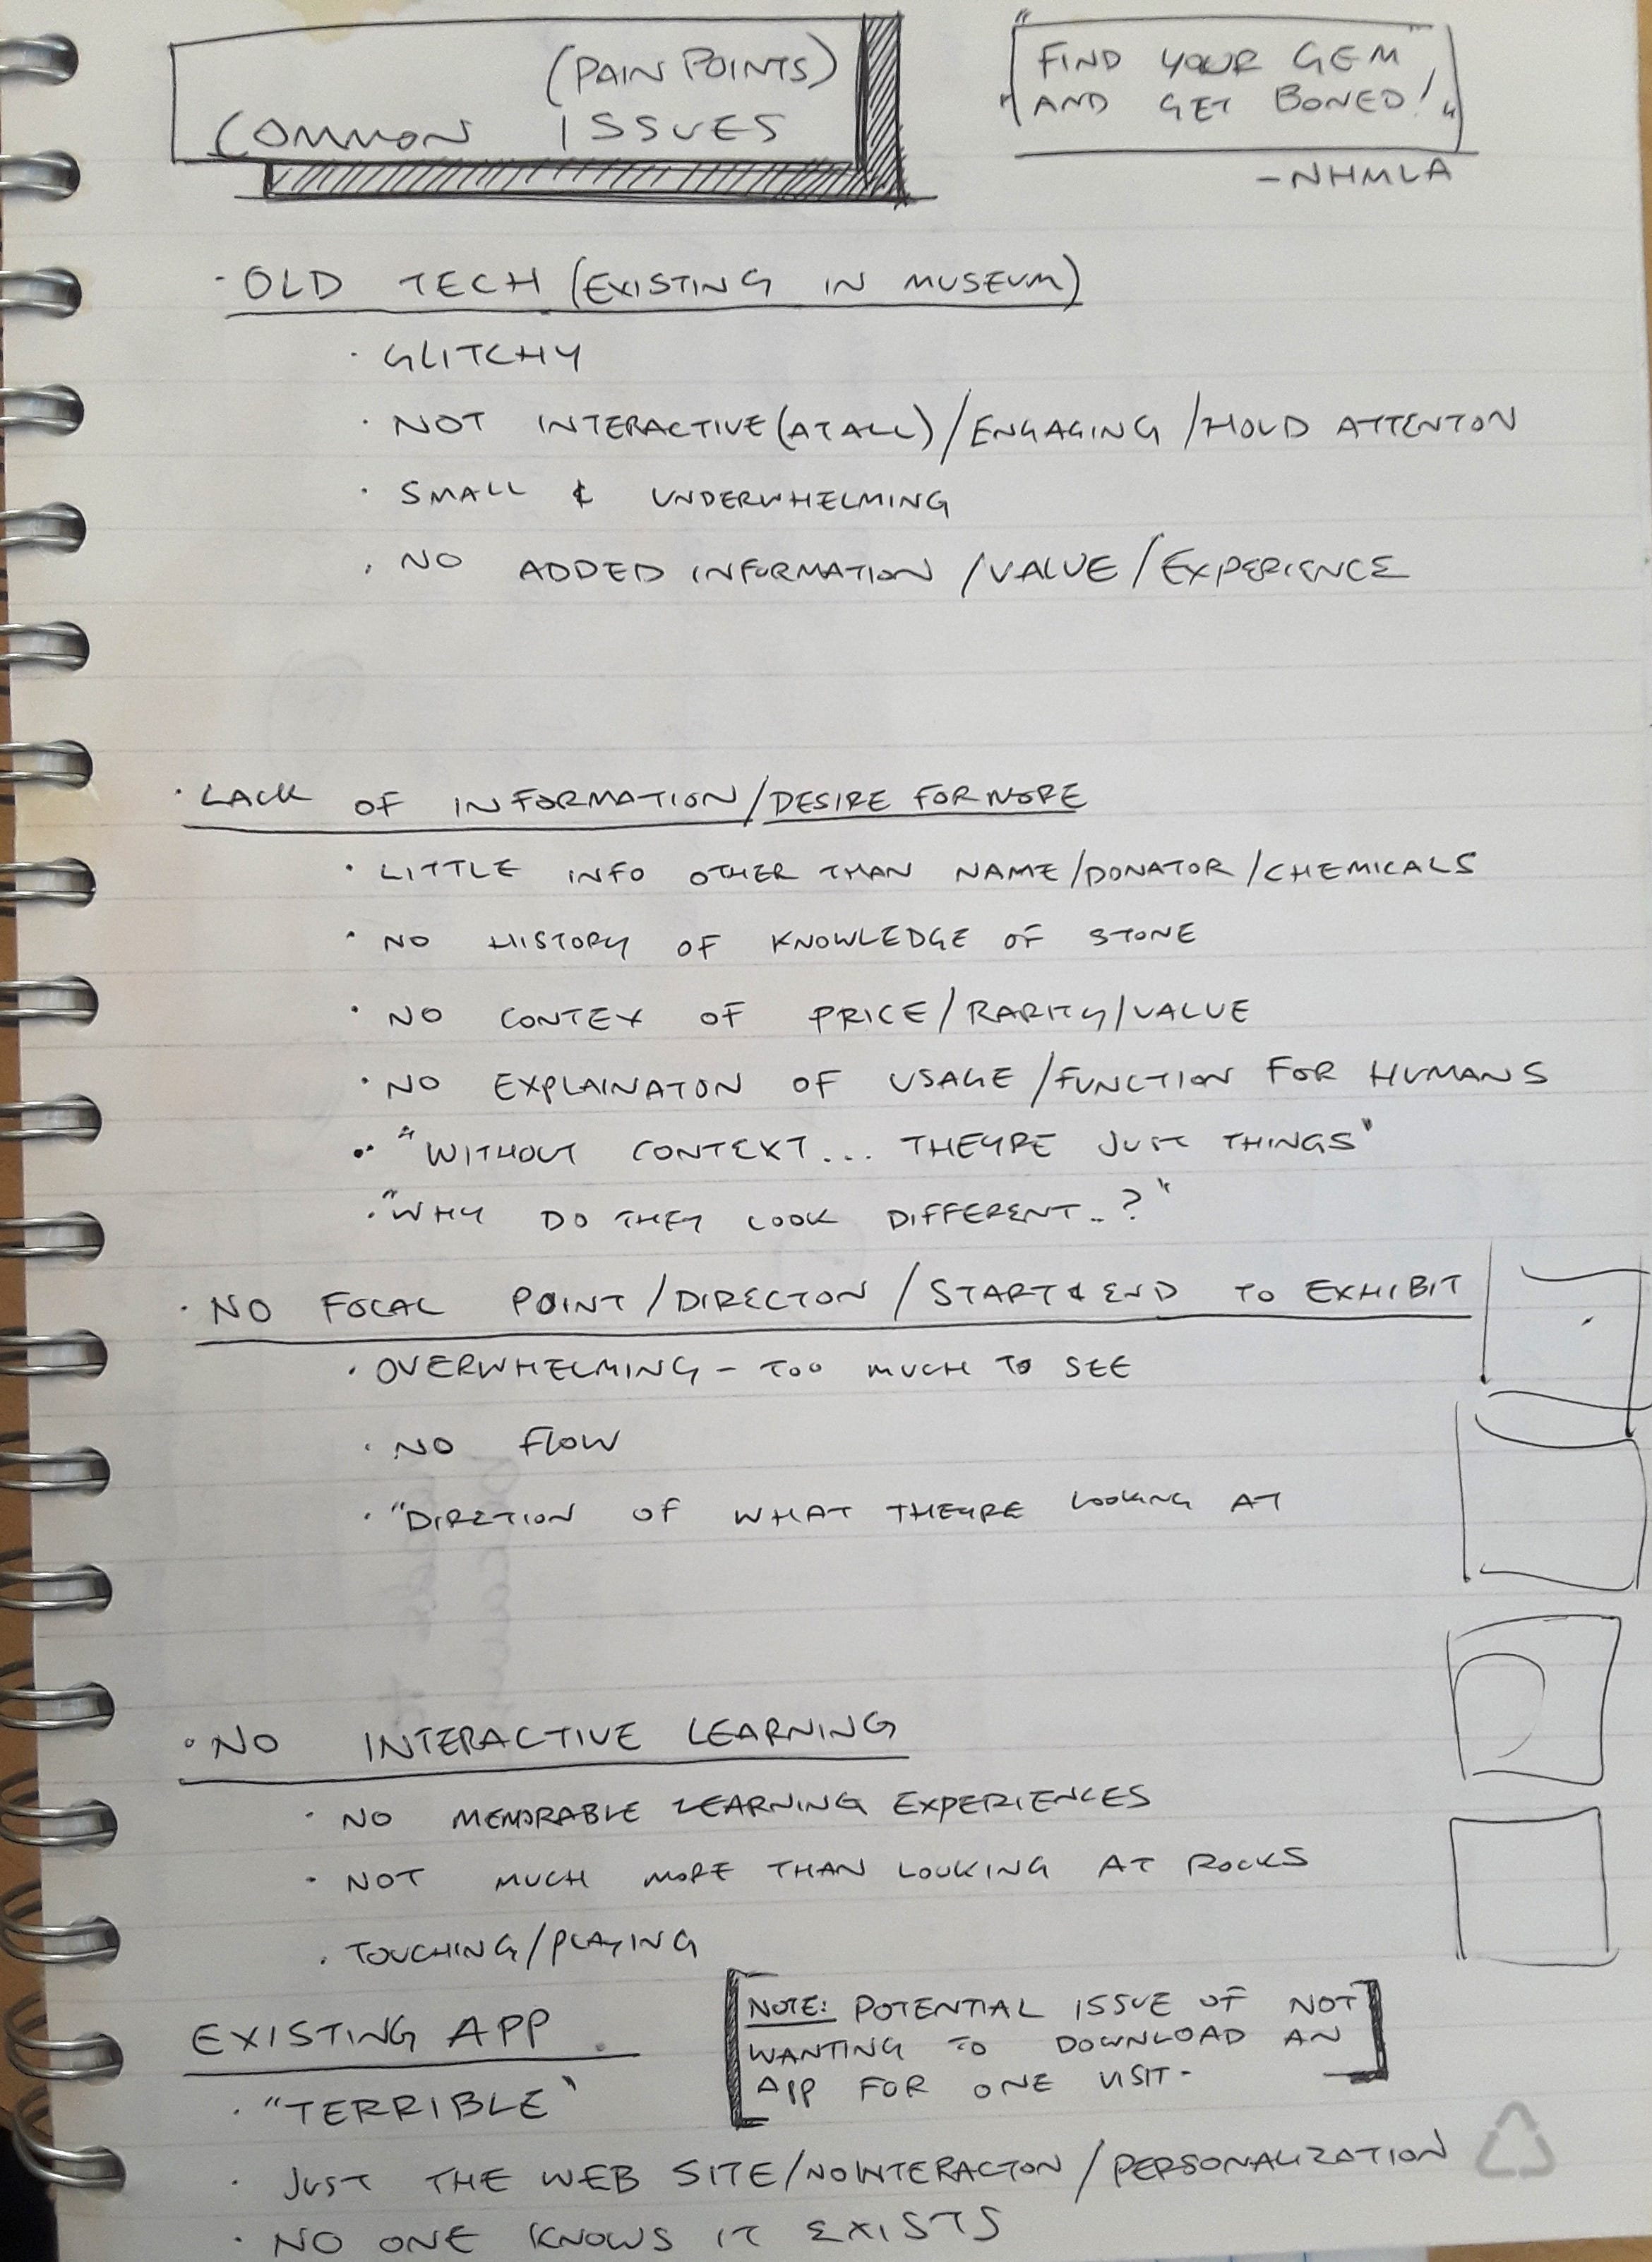 (PAIN POINTS)
COMMON ISSUES
"FIND YOUR GEM"
"AND GET BONED!"
-NHMLA
· OLD TECH (EXISTING IN MUSEUM)
· GLITCHY
· NOT INTERACTIVE (AT ALL) / ENGAGING / HOLD ATTENTON
· SMALL & UNDERWHELMING
· NO ADDED INFORMATION / VALUE / EXPERIENCE
· LACK OF INFORMATION / DESIRE FOR MORE
· LITTLE INFO OTHER THAN NAME / DONATOR / CHEMICALS
· NO HISTORY OF KNOWLEDGE OF STONE
· NO CONTEX OF PRICE / RARITY / VALUE
· NO EXPLAINATON OF USAGE / FUNCTION FOR HUMANS
· "WITHOUT CONTEXT... THEYRE JUST THINGS"
· "WHY DO THEY LOOK DIFFERENT..?"
· NO FOCAL POINT / DIRECTON / START & END TO EXHIBIT
· OVERWHELMING - TOO MUCH TO SEE
· NO FLOW
· "DIRETION OF WHAT THEYRE LOOKING AT
· NO INTERACTIVE LEARNING
· NO MEMORABLE LEARNING EXPERIENCES
· NOT MUCH MORE THAN LOOKING AT ROCKS
· TOUCHING / PLAYING
EXISTING APP
NOTE: POTENTIAL ISSUE OF NOT
WANTING TO DOWNLOAD AN
APP FOR ONE VISIT-
· "TERRIBLE"
· JUST THE WEB SITE / NO INTERACTON / PERSONALIZATION
· NO ONE KNOWS IT EXISTS